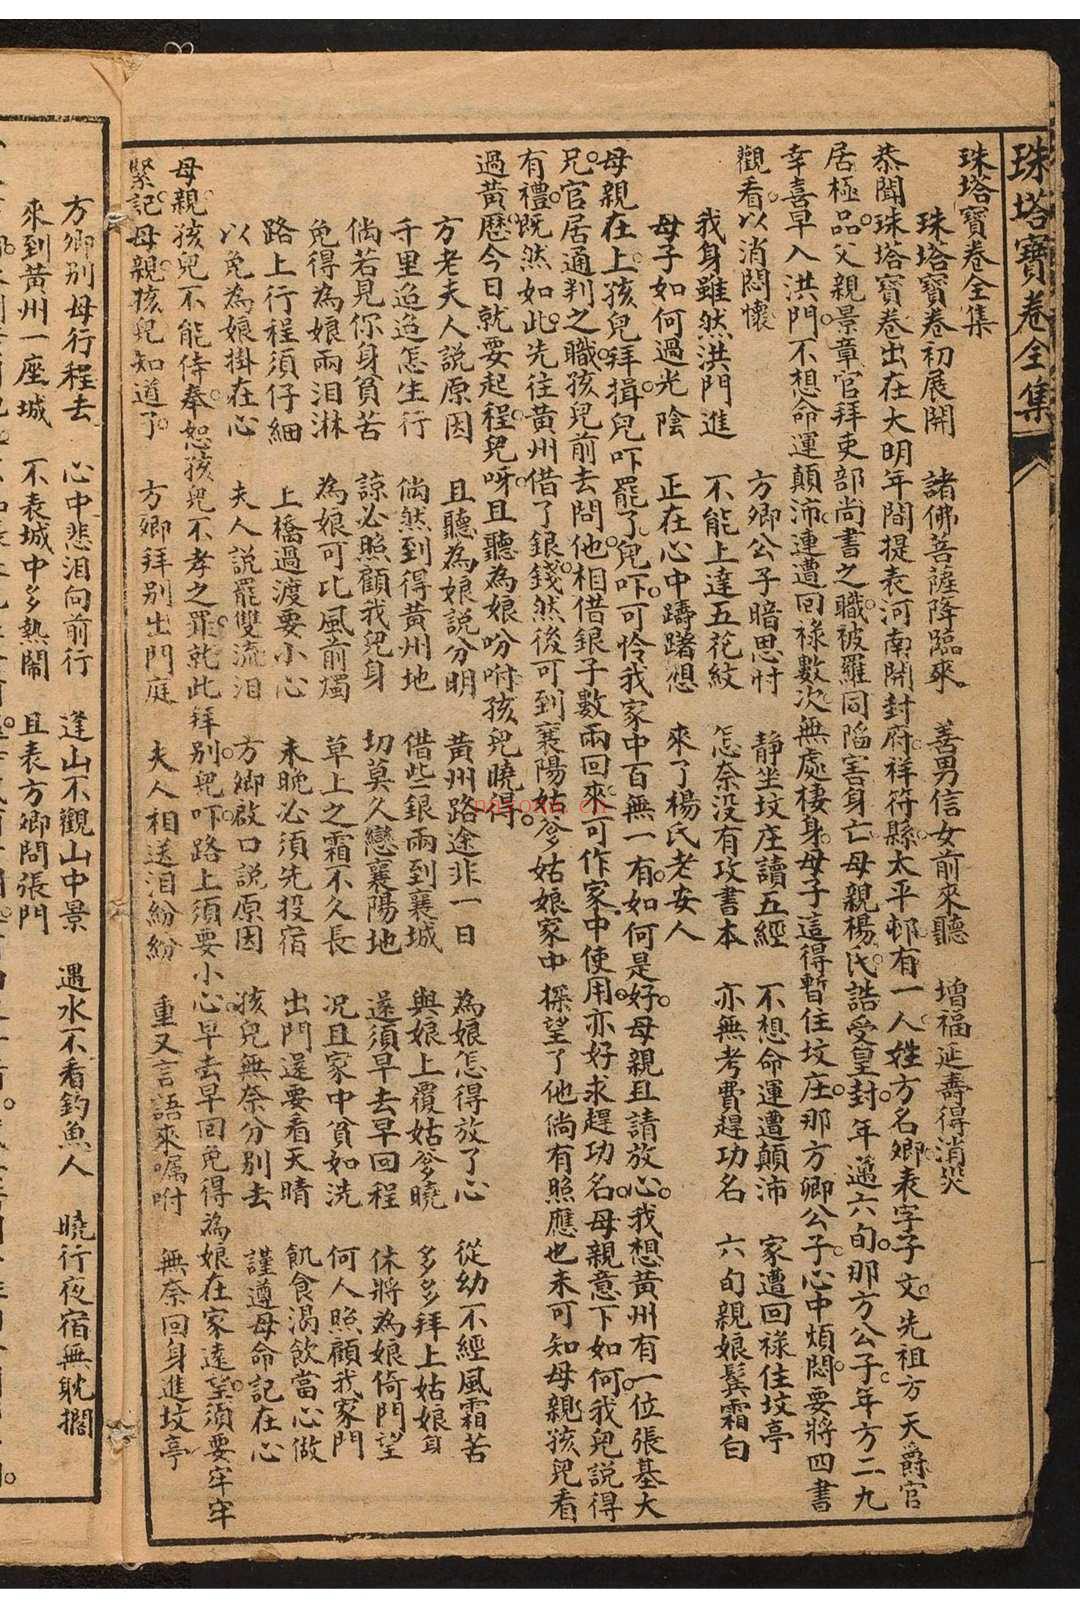 珠塔寶卷全集
珠塔寶卷全集
珠塔寶卷初展開 諸佛菩薩降臨來 善男信女前來聽 增福延壽得消災
恭聞珠塔寶卷出在大明年間提表河南開封府祥符縣太平邨有一人姓方名卿表字子文先祖方天爵官
居極品父親景章官拜吏部尚書之職被羅同陷害身亡母親楊氏誥受皇封年邁六旬那方公子年方二九
幸喜早入洪門不想命運顛沛連遭回祿數次無處棲身母子這得暫住坟庄那方卿公子心中煩悶要將四書
觀看以消悶懷
方卿公子暗思忖 靜坐坟庄讀五經 不想命運遭顛沛 家遭回祿住坟亭
我身雖然洪門進 不能上達五花紋 怎奈没有攻書本 亦無考費趕功名 六旬親娘鬓霜白
母子如何過光陰 正在心中躊躇想 來了楊氏老安人
母親在上孩兒拜揖兒吓罷了兒吓可怜我家中百無一有如何是好母親且請放心我想黃州有一位張基大
兄官居通判之職孩兒前去問他相借銀子數兩回來可作家中使用亦好求趕功名母親意下如何我兒說得
有禮既然如此先往黃州借了銀錢然後可到襄陽姑爹姑娘家中探望了他倘有照應也未可知母親孩兒看
過黃歷今日就要起程兒呀且聽為娘吩咐孩兒曉得
方老夫人說原因 且聽為娘說分明 黃州路途非一日 為娘怎得放了心 從幼不經風霜苦
千里迢迢怎生行 倘然到得黃州地 借些銀兩到襄城 與娘上覆姑爹曉 多多拜上姑娘身
倘若見你身貧苦 諒必照顧我兒身 切莫久戀襄陽地 遂須早去早回程 休將為娘倚門望
免得為娘兩泪淋 為娘可比風前燭 草上之霜不久長 况且家中貧如洗 何人照顧我家門
路上行程須仔細 上橋過渡要小心 未晚必須先投宿 出門逞要看天晴 飢食渴飲當心做
以免為娘掛在心 夫人說罷雙流泪 方卿啟口說原因 孩兒無奈分別去 謹遵母命記在心
母親孩兒不能侍奉恕孩兒不孝之罪就此拜別兒吓路上須要小心早去早回免得為娘在家遠望須要牢牢
緊記母親孩兒知道了 方卿拜別出門庭 夫人相送泪紛紛 重又言語來嘱咐 無奈回身進坟亭
方卿別母行程去 心中悲泪向前行 逢山不觀山中景 遇水不看釣魚人 曉行夜宿無耽擱
來到黃州一座城 不表城中多熱閙 且表方卿問張門